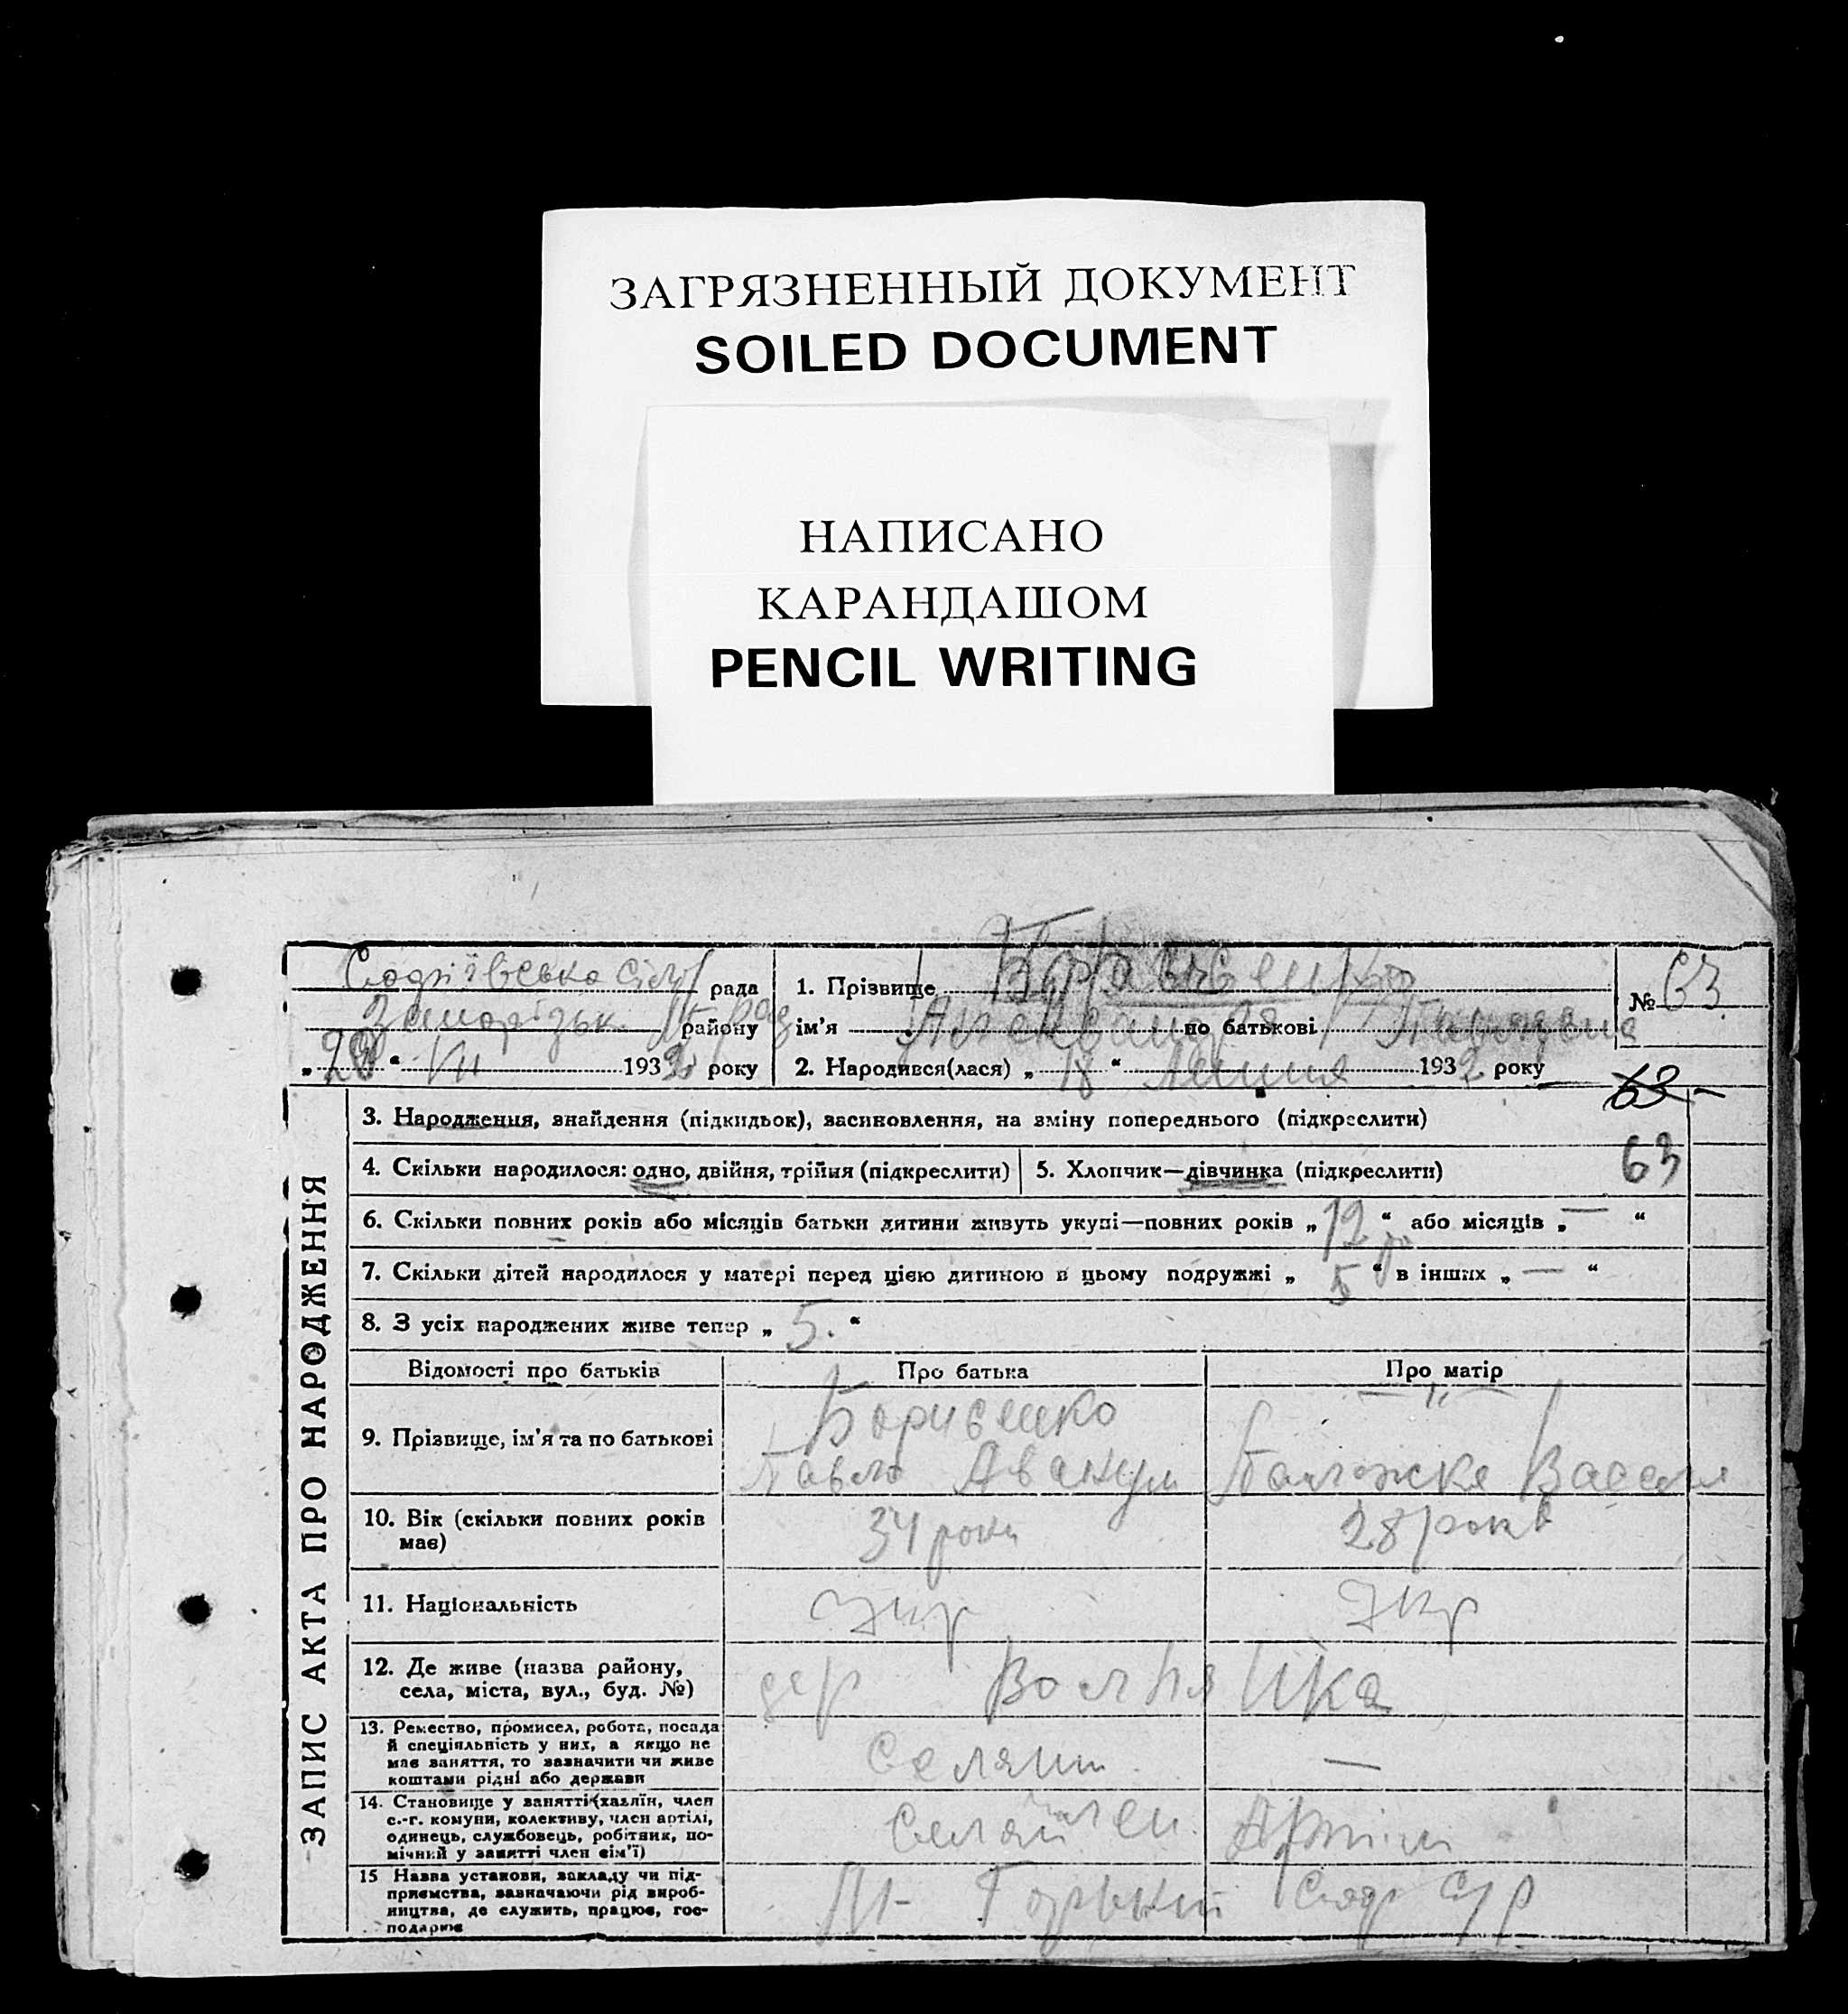 ЗАГРЯЗНЕННЫЙ ДОКУМЕНТ
SOILED DOCUMENT
НАПИСАНО
КАРАНДАШОМ
PENCIL WRITING
рада
району
„ 193 року
1. Прізвище
ім'я по батькові
2. Народився(лася) „18“ 1932 року
№ 63
63
63
ЗАПИС АКТА ПРО НАРОДЖЕННЯ
3. Народження, знайдення (підкидьок), засиновлення, на зміну попереднього (підкреслити)
4. Скільки народилося: одно, двійня, трійня (підкреслити)
5. Хлопчик—дівчинка (підкреслити)
6. Скільки повних років або місяців батьки дитини живуть укупі—повних років „12“ або місяців „—“
7. Скільки дітей народилося у матері перед цією дитиною в цьому подружжі „5“ в інших „—“
8. З усіх народжених живе тепер „5.“
Відомості про батьків
Про батька
Про матір
9. Прізвище, ім'я та по батькові
Борисенко
Павло
— „ —
10. Вік (скільки повних років
має)
34 роки
28 років
11. Національність
Укр
Укр
12. Де живе (назва району,
села, міста, вул., буд. №)
дер
13. Ремество, промисел, робота, посада
й спеціяльність у них, а якщо не
має заняття, то зазначити чи живе
коштами рідні або держави
Селянин
—
14. Становище у занятті (хазяїн, член
с.-г. комуни, колективу, член артілі,
одинець, службовець, робітник, по-
мічний у занятті член сім'ї)
член Артіли
15 Назва установи, закладу чи під-
приємства, зазначаючи рід вироб-
ництва, де служить, працює, гос-
подарює
Горький